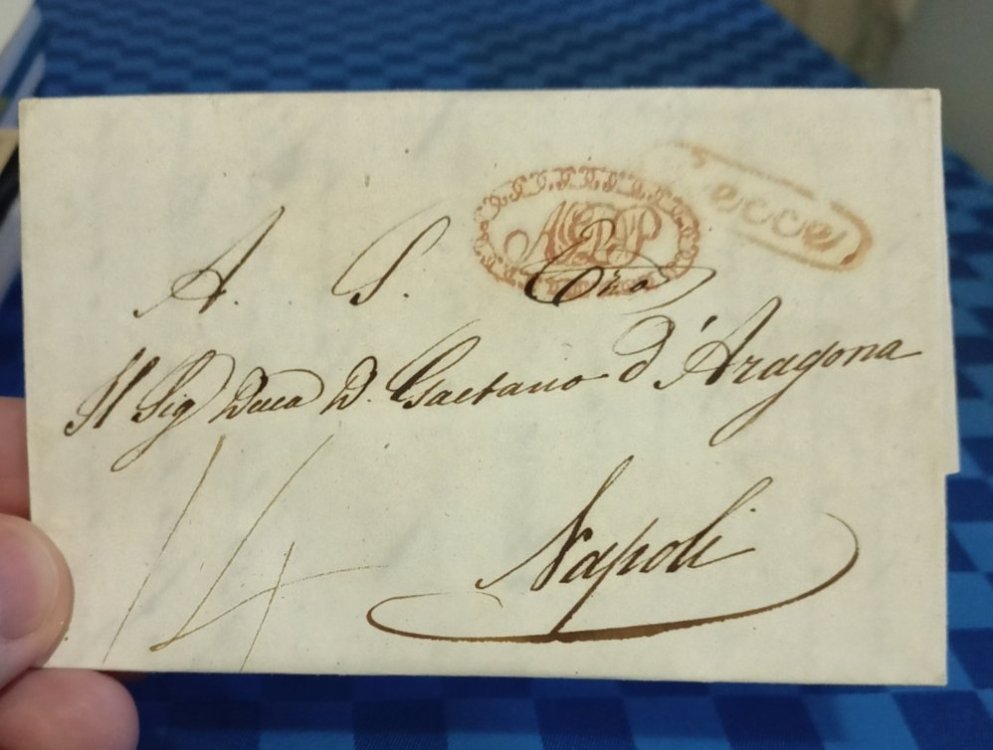 Lecce
A. S. Ecc.
Il Sig Duca D. Gaetano d'Aragona
14
Napoli